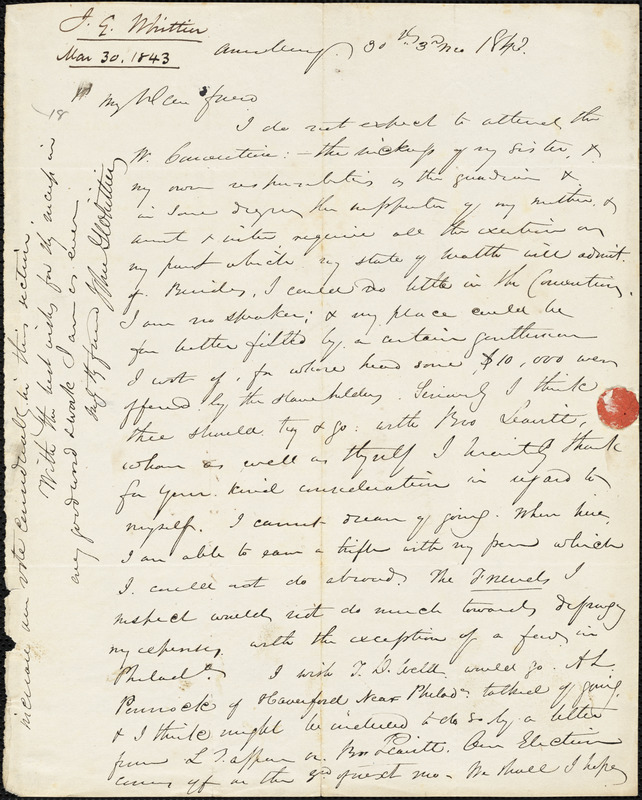 J. G. Whittier
Mar 30. 1843
Amesbury. 30th 3rd mo 1843.
My Dear friend
I do not expect to attend the
W. Convention: — the sickness of my sister, &
my own responsibilities as the guardian &
in some degree the supporter of my mother &
aunt & sister require all the exertion on
my part which my state of health will admit
of. Besides, I could do little in the Convention.
I am no speaker; & my place could be
far better filled by a certain gentleman
I wot of, for whose head some $10,000 were
offered by the slaveholders. Seriously I think
thee should try & go with Bro Leavitt,
whom as well as thyself I heartily thank
for your kind consideration in regard to
myself. I cannot dream of going. When here,
I am able to earn a trifle with my pen which
I could not do abroad. The Friends I
suspect would not do much towards defraying
my expenses, with the exception of a few in
Philada. I wish T. D. Weld would go. A. L.
Pennock of Haverford near Philada talked of going,
& I think might be induced to do so by a letter
from L Tappan or Bro Leavitt. Our Election
comes off on the 3rd of next mo. We shall I hope
increase our vote considerably in this section.
With the best wishes for thy success in
any good word & work I am as ever
truly thy friend John G Whittier
18